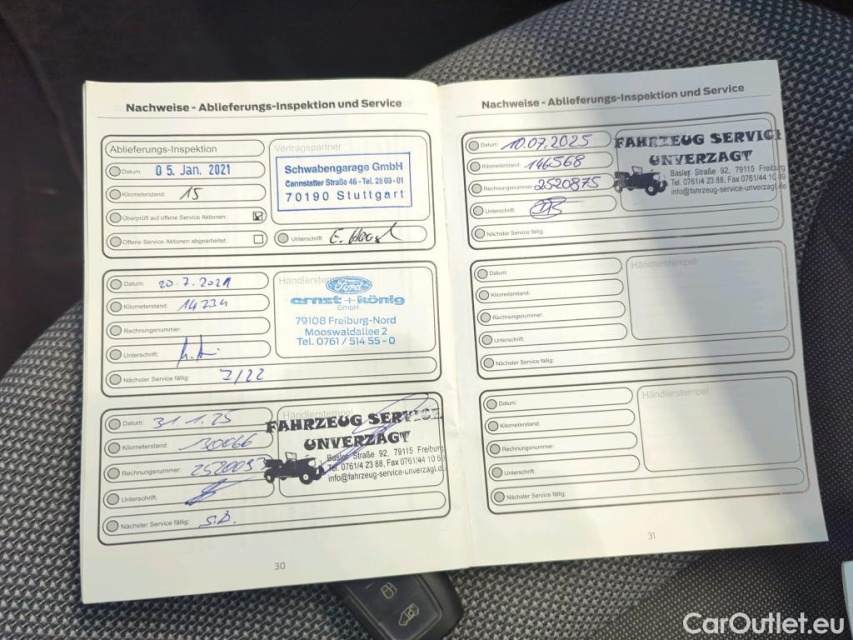 Nachweise - Ablieferungs-Inspektion und Service
Ablieferungs-Inspektion
Datum: 05. Jan. 2021
Kilometerstand: 15
Überprüft auf offene Service Aktionen:
Offene Service Aktionen abgearbeitet:
Vertragspartner
Schwabengarage GmbH
Cannstatter Straße 46 - Tel. 28 03-01
70190 Stuttgart
Unterschrift:
Datum: 20.7.2021
Kilometerstand: 14234
Rechnungsnummer:
Unterschrift:
Nächster Service fällig: 7/22
Händlerstempel
Ford
ernst+könig
GmbH
79108 Freiburg-Nord
Mooswaldallee 2
Tel. 0761 / 514 55 - 0
Datum: 31.1.25
Kilometerstand: 130066
Rechnungsnummer:
Unterschrift:
Nächster Service fällig:
Händlerstempel
FAHRZEUG SERVICE
UNVERZAGT
Basler Straße 92, 79115 Freiburg
Tel. 0761/4 23 88, Fax 0761/44 10
info@fahrzeug-service-unverzagt.de
30
Nachweise - Ablieferungs-Inspektion und Service
Datum: 10.07.2025
Kilometerstand: 146568
Rechnungsnummer: 2520875
Unterschrift:
Nächster Service fällig:
FAHRZEUG SERVICE
UNVERZAGT
Basler Straße 92, 79115 Freiburg
Tel. 0761/4 23 88, Fax 0761/44 10
info@fahrzeug-service-unverzagt.de
Datum:
Kilometerstand:
Rechnungsnummer:
Unterschrift:
Nächster Service fällig:
Händlerstempel
Datum:
Kilometerstand:
Rechnungsnummer:
Unterschrift:
Nächster Service fällig:
Händlerstempel
31
CarOutlet.eu